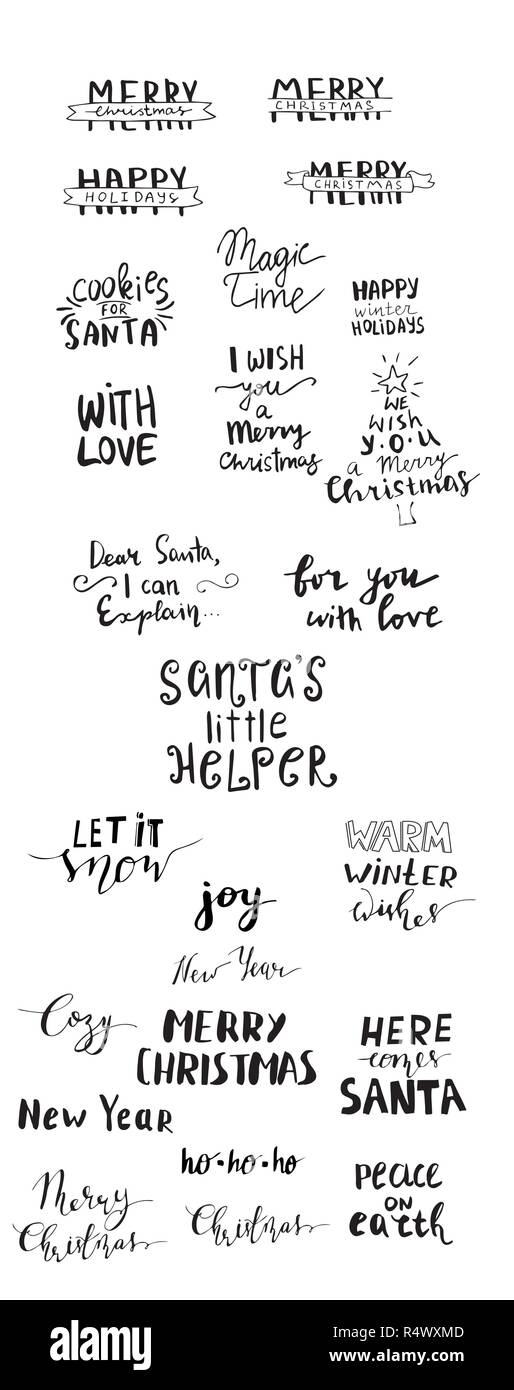 MERRY
Christmas
MERRY
CHRISTMAS
HAPPY
HOLIDAYS
MERRY
CHRISTMAS
Magic
Time
Cookies
FOR
SANTA
HAPPY
winter
HOLIDAYS
I WISH
you
a
Merry
Christmas
WITH
LOVE
WE
wish
y.o.u
a Merry
Christmas
Dear Santa,
I can
Explain...
for you
with love
SANTA'S
little
HELPER
LET iT
snow
WARM
WiNtER
wishes
joy
New Year
Cozy
MERRY
CHRISTMAS
HERE
comes
SANTA
New Year
ho·ho·ho
Merry
Christmas
Christmas
peace
ON
earth
alamy
a
alamy
Image ID: R4WXMD
www.alamy.com